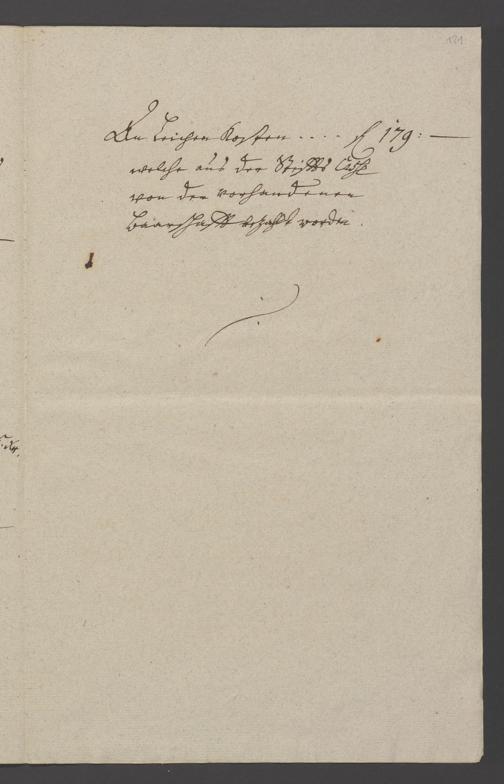 131
An Leichen Kosten .... f 179: —
welche aus der Stiffts Cassa
von der vorhandenen
Baarschafft bezahlt worden.